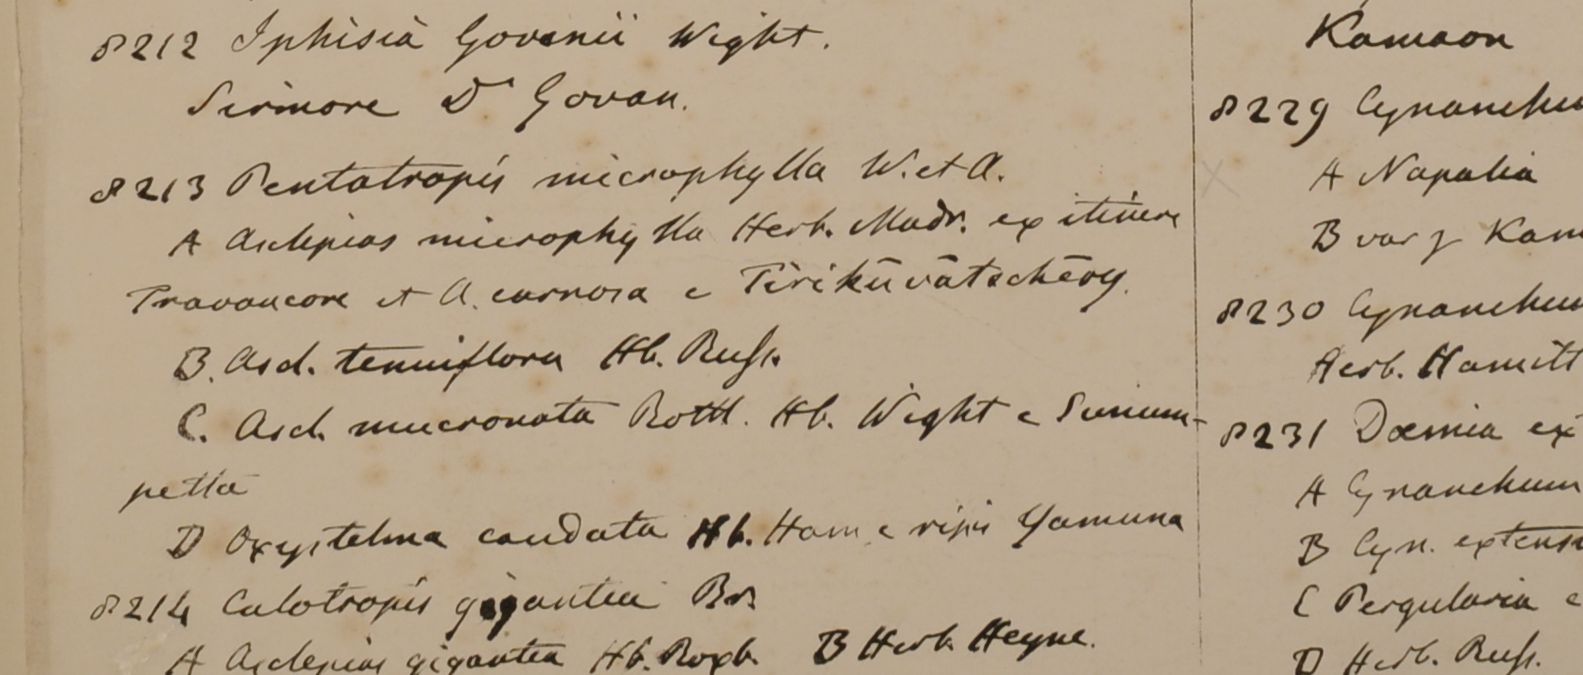 8212 Iphisia Govanii Wight.
Sirmore Dr Govan.
8213 Pentatropis microphylla W. et A.
A Asclepias microphylla Herb. Madr. ex itinere
Travancore et A. carnosa e Tirikūvātschēry.
B. Ascl. tenuiflora Hb. Russ.
C. Ascl. mucronata Rottl. Hb. Wight e
petta
D Oxystelma caudata Hb. Ham. e ripis Yamuna
8214 Calotropis gigantea Br.
A Asclepias gigantea Hb. Roxb. B Herb. Heyne.
Kamaon
8229 Cynanchu
A Napalia
B var γ Kam
8230 Cynanchum
Herb. Hamilt
8231 Dæmia ex
A Cynanchum
B Cyn. extens
C Pergularia e
D Herb. Russ.